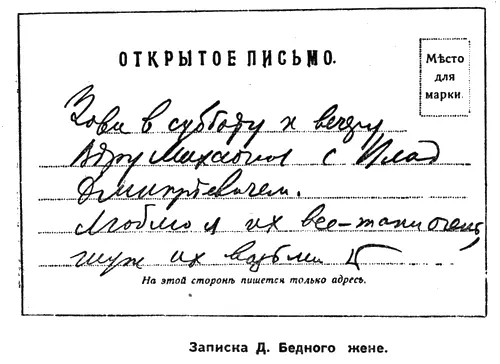 ОТКРЫТОЕ ПИСЬМО.
Мѣсто
для
марки.
Зови в субботу к вечеру
Веру с Влад
Дмитріевичем.
Люблю я их все-таки очень,
шут их возьми
На этой сторонѣ пишется только адресъ.
Записка Д. Бедного жене.